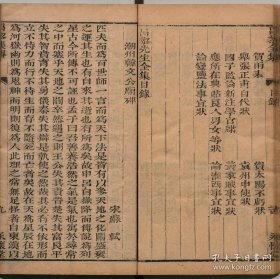 賀雨表　賀太陽不虧狀
舉張正甫自代狀　袁州申使狀
國子監論新注學官牒　黃家賊事宜狀
應所在典貼良人男女等狀　論淮西事宜狀
論變鹽法事宜狀
昌黎先生全集目錄
潮州韓文公廟碑
宋蘇軾
匹夫而為百世師一言而為天下法是皆有以參天地之化關盛衰
之運其生也有自來其逝也有所為矣故申呂自嶽降傅說為列星
古今所傳不可誣也孟子曰我善養吾浩然之氣是氣也寓於尋常
之中而塞乎天地之間卒然遇之則王公失其貴晉楚失其富良平
失其智賁育失其勇儀秦失其辯是孰使之然哉其必有不依形而
立不恃力而行不待生而存不隨死而亡者矣故在天為星辰在地
為河嶽幽則為鬼神而明則復為人此理之常無足怪者自東漢以